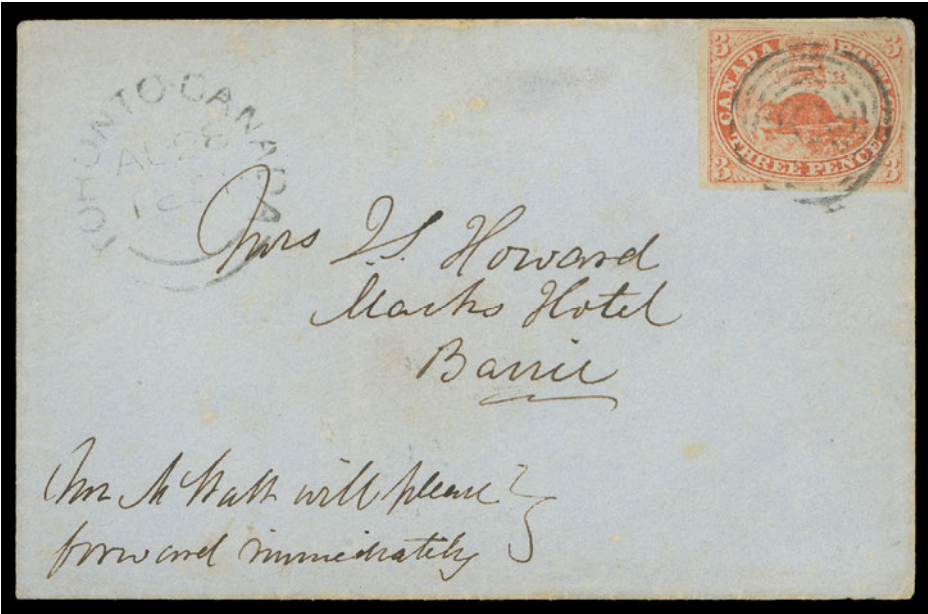 TORONTO·CANADA
AU 28
3 CANADA POSTAGE 3
3 THREE PENCE 3
Mrs J.S. Howard
Marks Hotel
Barrie
Mr McWatt will please
forward immediately